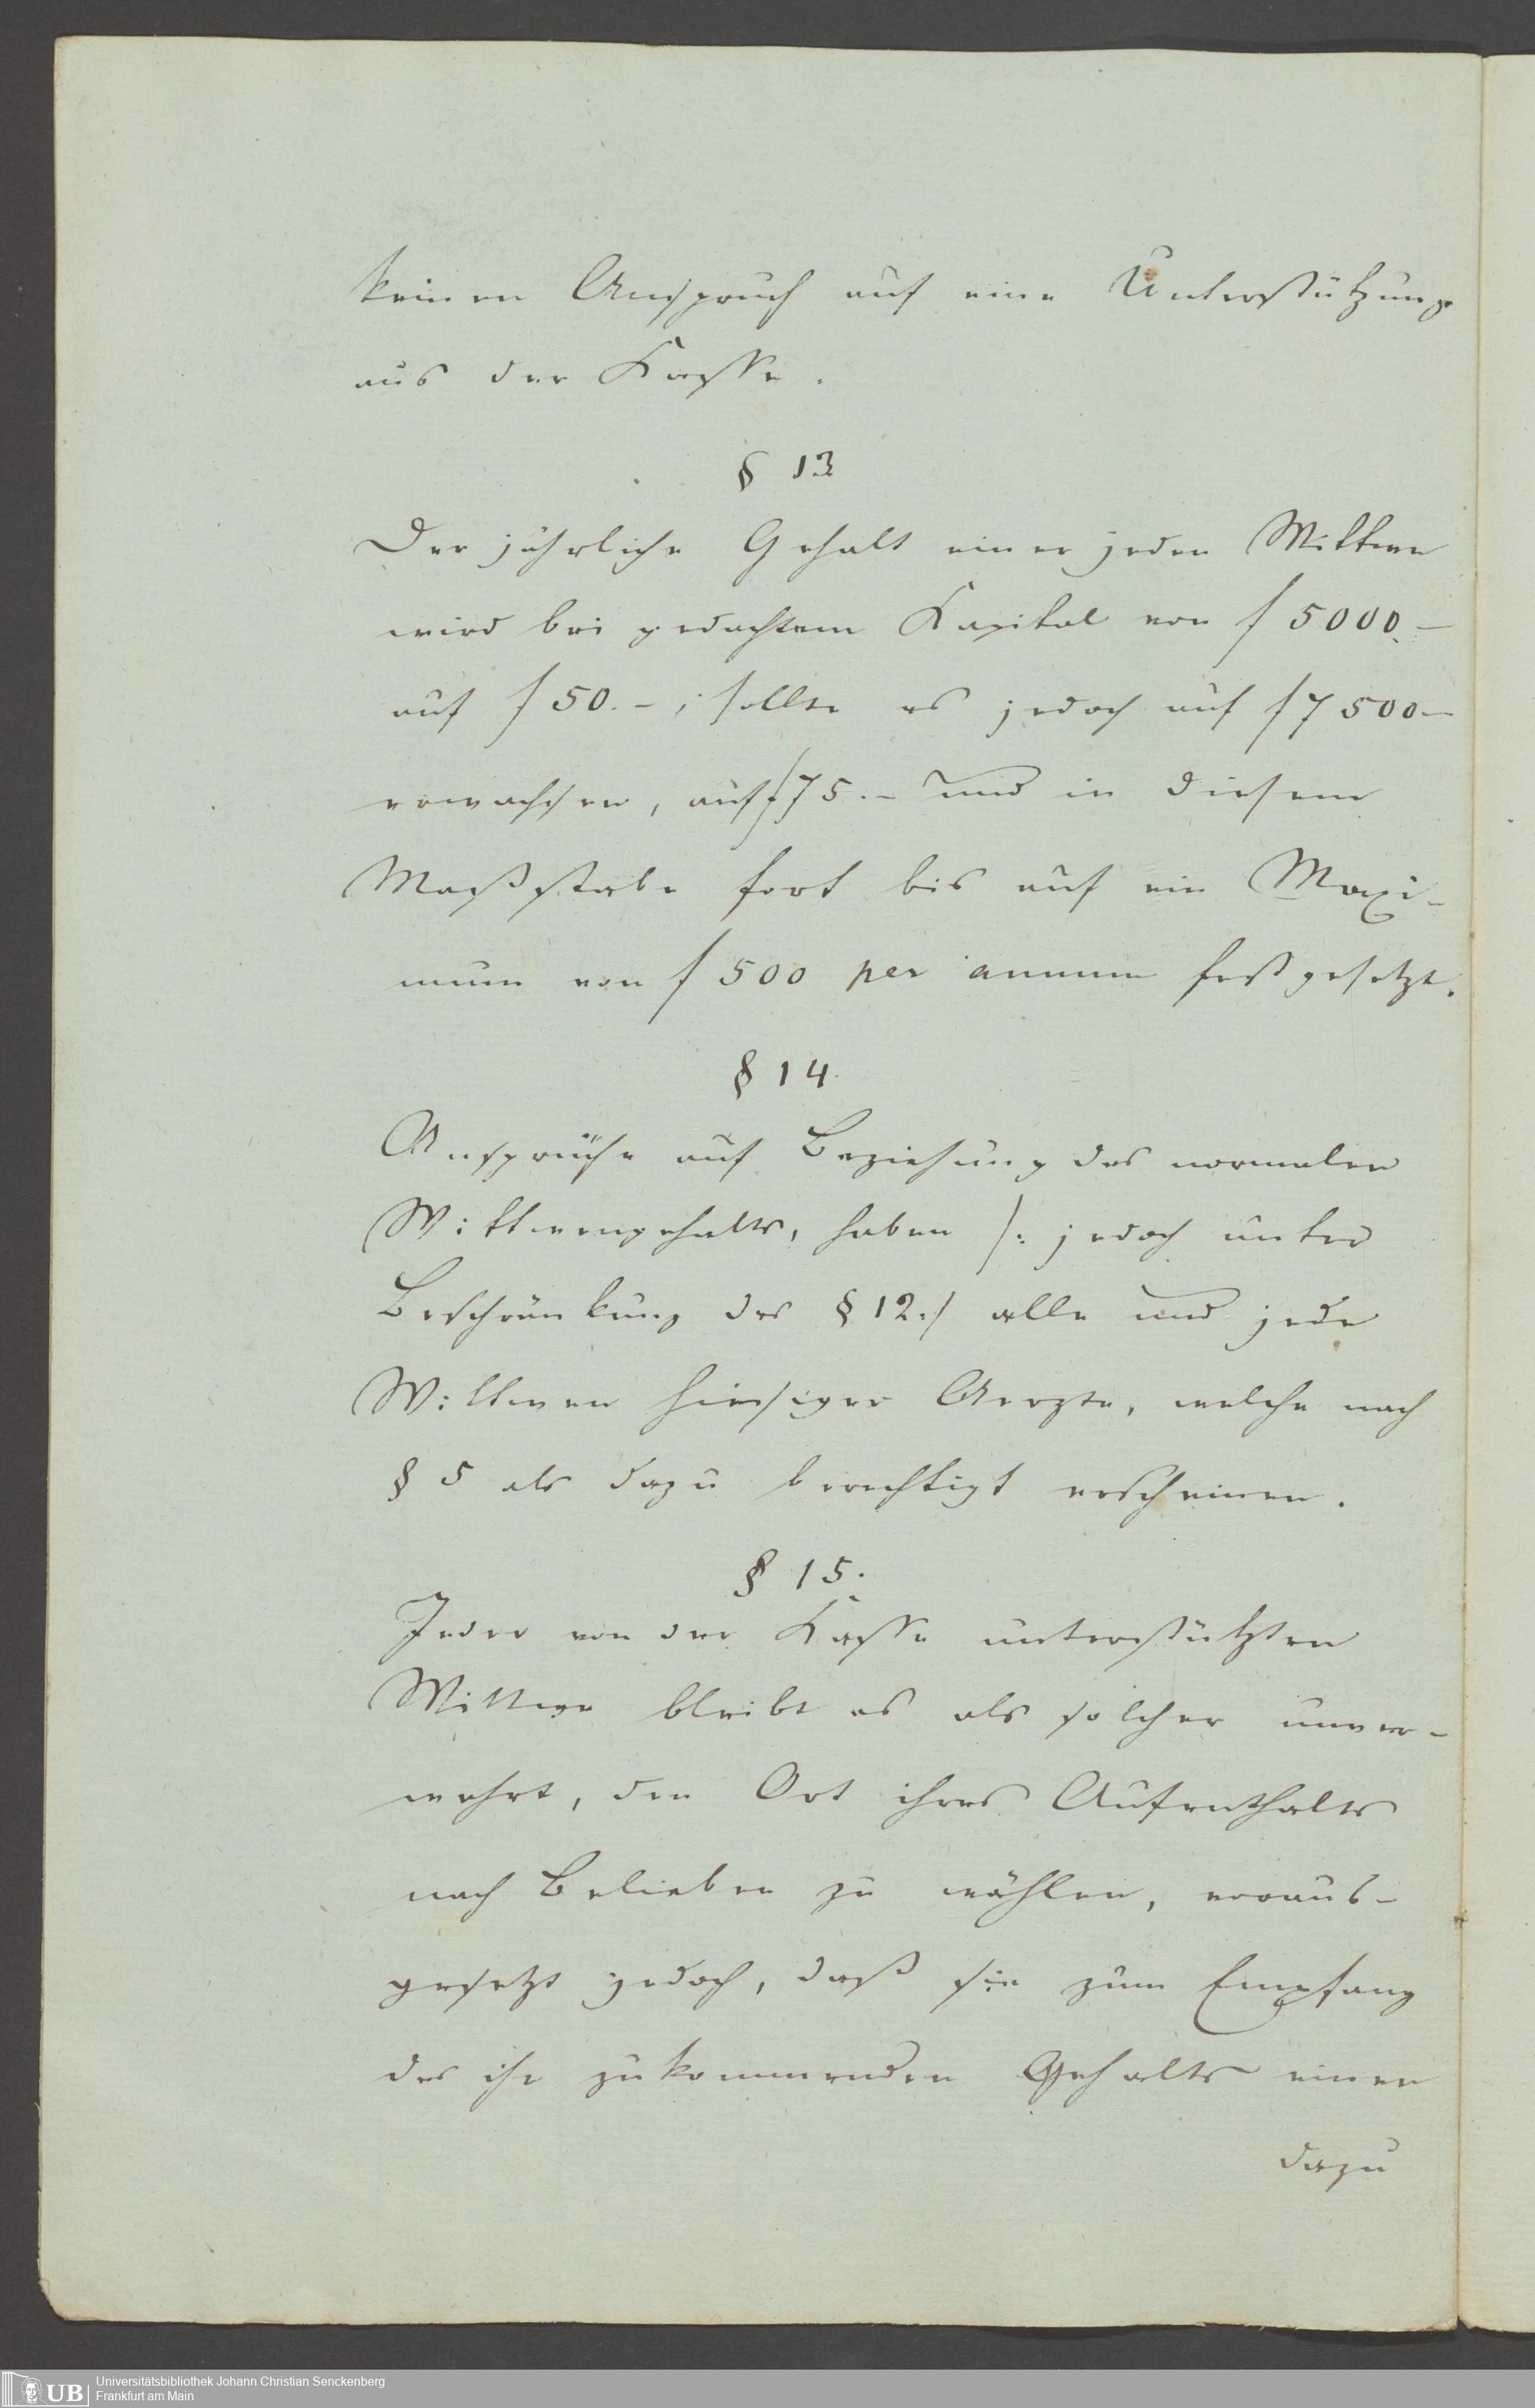 keinen Anspruch auf eine Unterstützung
aus der Kasse.
§ 13
Der jährliche Gehalt einer jeden Wittwe
wird bei gedachtem Kapital von f 5000.–
auf f 50.–; sollte es jedoch auf f 7500–
erwachsen, auf f 75.– und in diesem
Maßstabe fort bis auf ein Maxi-
mum von f 500 per annum festgesetzt.
§ 14.
Ansprüche auf Beziehung des normalen
Wittwengehalts, haben /: jedoch unter
Beschränkung des § 12 :/ alle und jede
Wittwen hiesiger Aerzte, welche nach
§ 5 als dazu berechtigt erscheinen.
§ 15.
Jeder von der Kasse unterstützten
Wittwe bleibt es als solcher unver-
wehrt, den Ort ihres Aufenthalts
nach Belieben zu wählen, voraus-
gesetzt jedoch, daß sie zum Empfang
des ihr zukommenden Gehalts einen
dazu
UB
Universitätsbibliothek Johann Christian Senckenberg
Frankfurt am Main